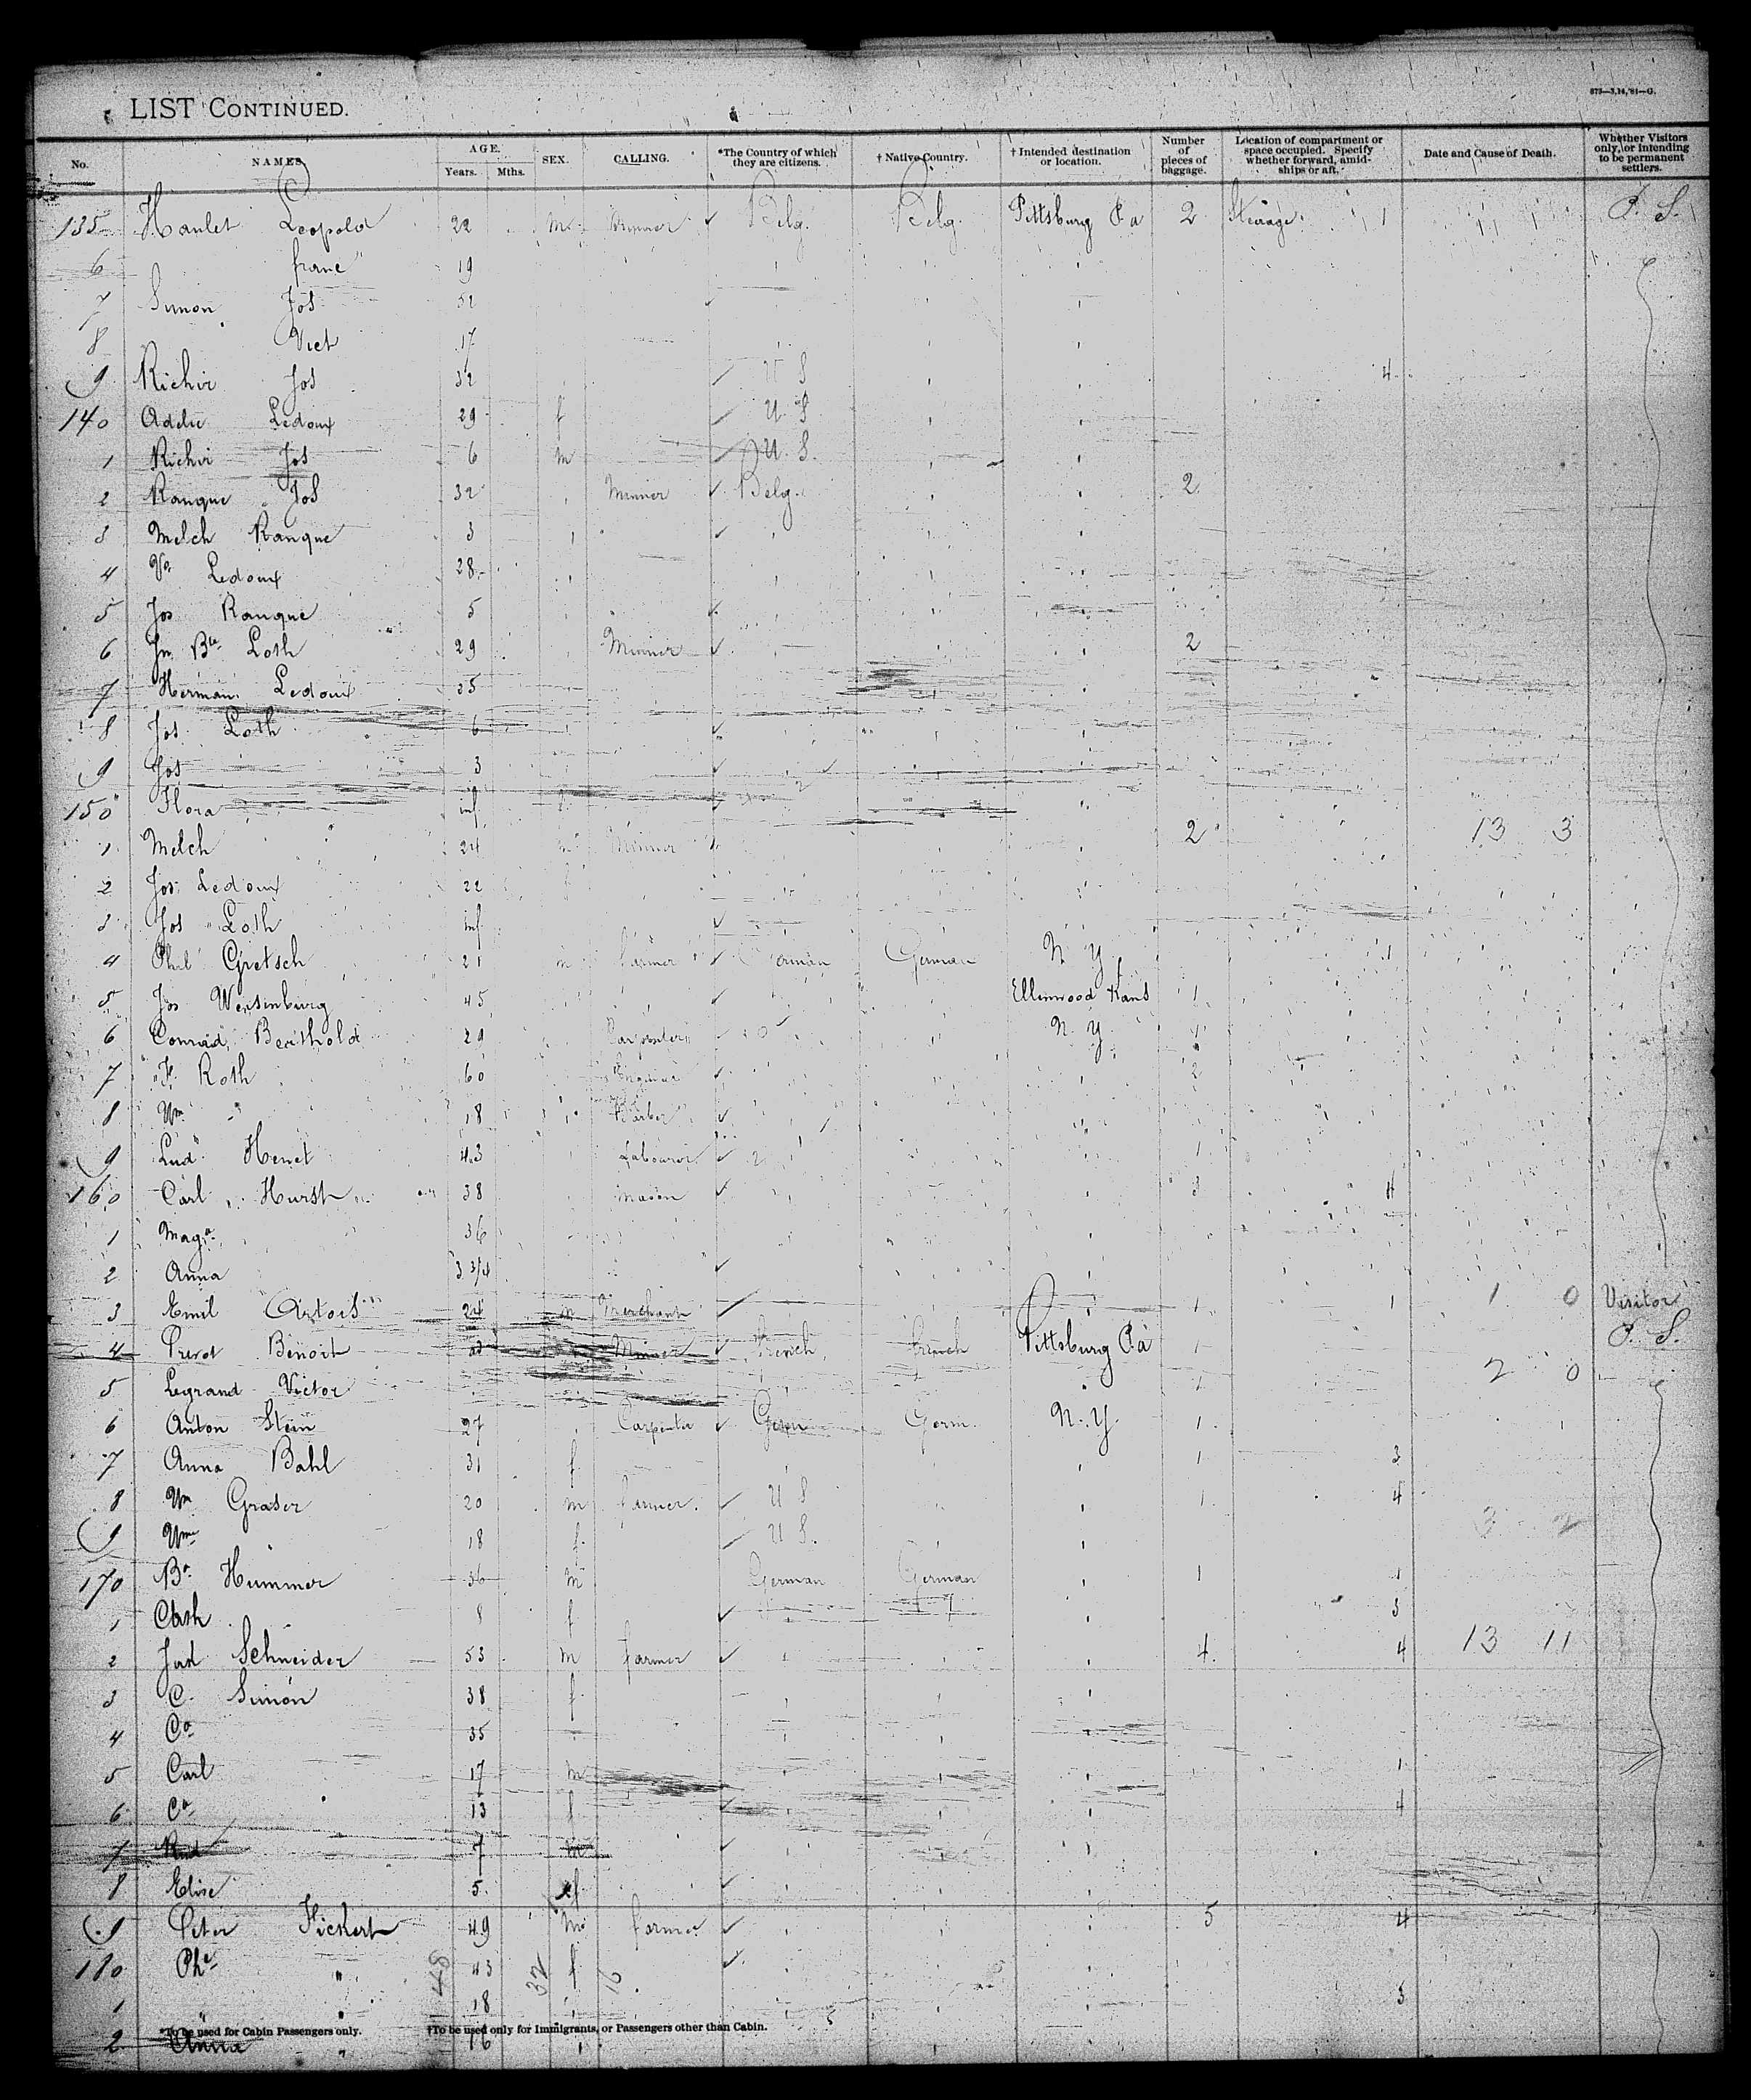 LIST CONTINUED.
No. NAMES AGE. Years. Mths. SEX. CALLING. *The Country of which they are citizens. † Native Country. † Intended destination or location. Number of pieces of baggage. Location of compartment or space occupied. Specify whether forward, amidships or aft. Date and Cause of Death. Whether Visitors only, or intending to be permanent settlers.
135 Leopold 22 m Belg. Belg. Pittsburg Pa 2 1 P. S.
6 " 19
7 Simon Jos 52
8 " Vict 17
9 Richir Jos 32 U S 4
140 Adele Ledoux 29 f U. S
1 Richir Jos 6 m U. S.
2 Ranque Jos 32 Minner Belg. 2
3 Melch Ranque 3
4 Ledoux 28
5 Jos Ranque 5
6 Loth 29 Minner 2
7 Herman Ledoux 25
8 Jos Loth 6
9 Jos 3
150 Flora " inf
1 Melch " 24 m Minner 2 13 3
2 Jos Ledoux 22 f
3 Jos Loth inf
4 Phil Gretsch 21 m farmer German German N Y 1
5 Jos Weisenburg 45 Ellinwood Kans 1
6 Conrad Berthold 29 Carpenter N. Y. 1
7 Roth 60 2
8 Wm " 18 Barber
9 Lud Henet 43 Labourer 1
160 Carl Hurst 38 mason 3 4
1 Maga 36
2 Anna 3 3/4
3 Emil Artois 24 m Merchant 1 1 1 0 Visitor
4 Benoit Minner French french Pittsburg Pa 1 P. S.
5 Legrand Victor 1 2 0
6 Anton Stein 27 Carpenter Germ Germ. N. Y. 1
7 Anna Bahl 31 f 1 3
8 Wm Graser 20 m farmer. U S 1 4
9 18 f. U S. 3 2
170 Ba Hummer 36 m German German 1 1
1 8 f 3
2 Schneider 53 m farmer 4. 4 13 11
3 C. Simon 38 f
4 Ca 35
5 Carl 17 m 1
6 Ca 13 f 4
7 7 m
8 Elise 5. f
9 Peter Fickert 49 m farmer 5 4
180 " 43 f
1 " " 18 3
48 32 16
*To be used for Cabin Passengers only. †To be used only for Immigrants, or Passengers other than Cabin.
2 Anna " 16